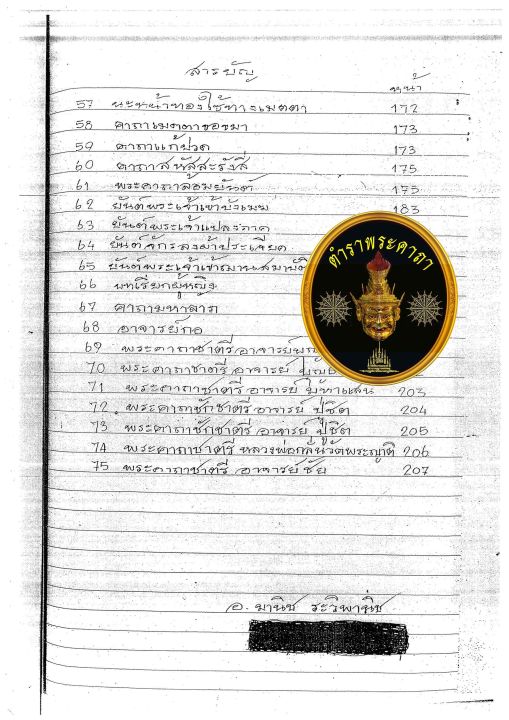 สารบัญ
หน้า
57 นะหน้าทองใช้ทางเมตตา 172
58 คาถาเมตตาของมา 173
59 คาถาแก้ปวด 173
60 คาถาสหัสสะรังสี 175
61 พระคาถาล้อมยันต์ 175
62 ยันต์พระเจ้าเข้า 183
63 ยันต์พระเจ้าแปลง
64 ยันต์จักรลงผ้าประเจียด
65 ยันต์พระเจ้าเข้าฌานสมาบัติ
66 บทเรียกผู้หญิง
67 คาถามหาลาภ
68 อาจารย์กอ
69 พระคาถาชาตรี อาจารย์
70 พระคาถาชาตรี อาจารย์
71 พระคาถาชาตรี อาจารย์ 203
72 พระคาถาชักชาตรี อาจารย์ ปู่ชิต 204
73 พระคาถาชักชาตรี อาจารย์ ปู่ชิต 205
74 พระคาถาชาตรี หลวงพ่อกลั่นวัดพระญาติ 206
75 พระคาถาชาตรี อาจารย์ชัย 207
ตำราพระคาถา
อ. มานิช ระวิพานิช